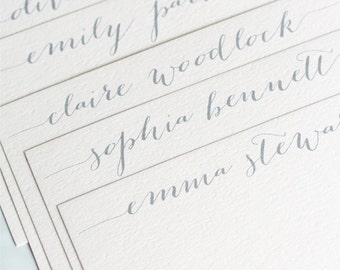 emily
claire woodlock
sophia bennett
emma